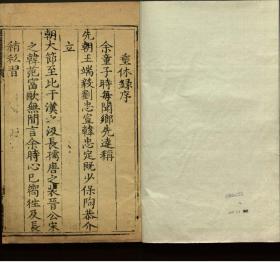 垂休錄序
余童子時每聞鄉先達稱
先朝王端毅劉忠宣韓忠定既必保陶恭介
立
朝大節至比于漢之汲長孺唐之裴晉公宋
之韓范富歐無間言余時心已嚮往及長